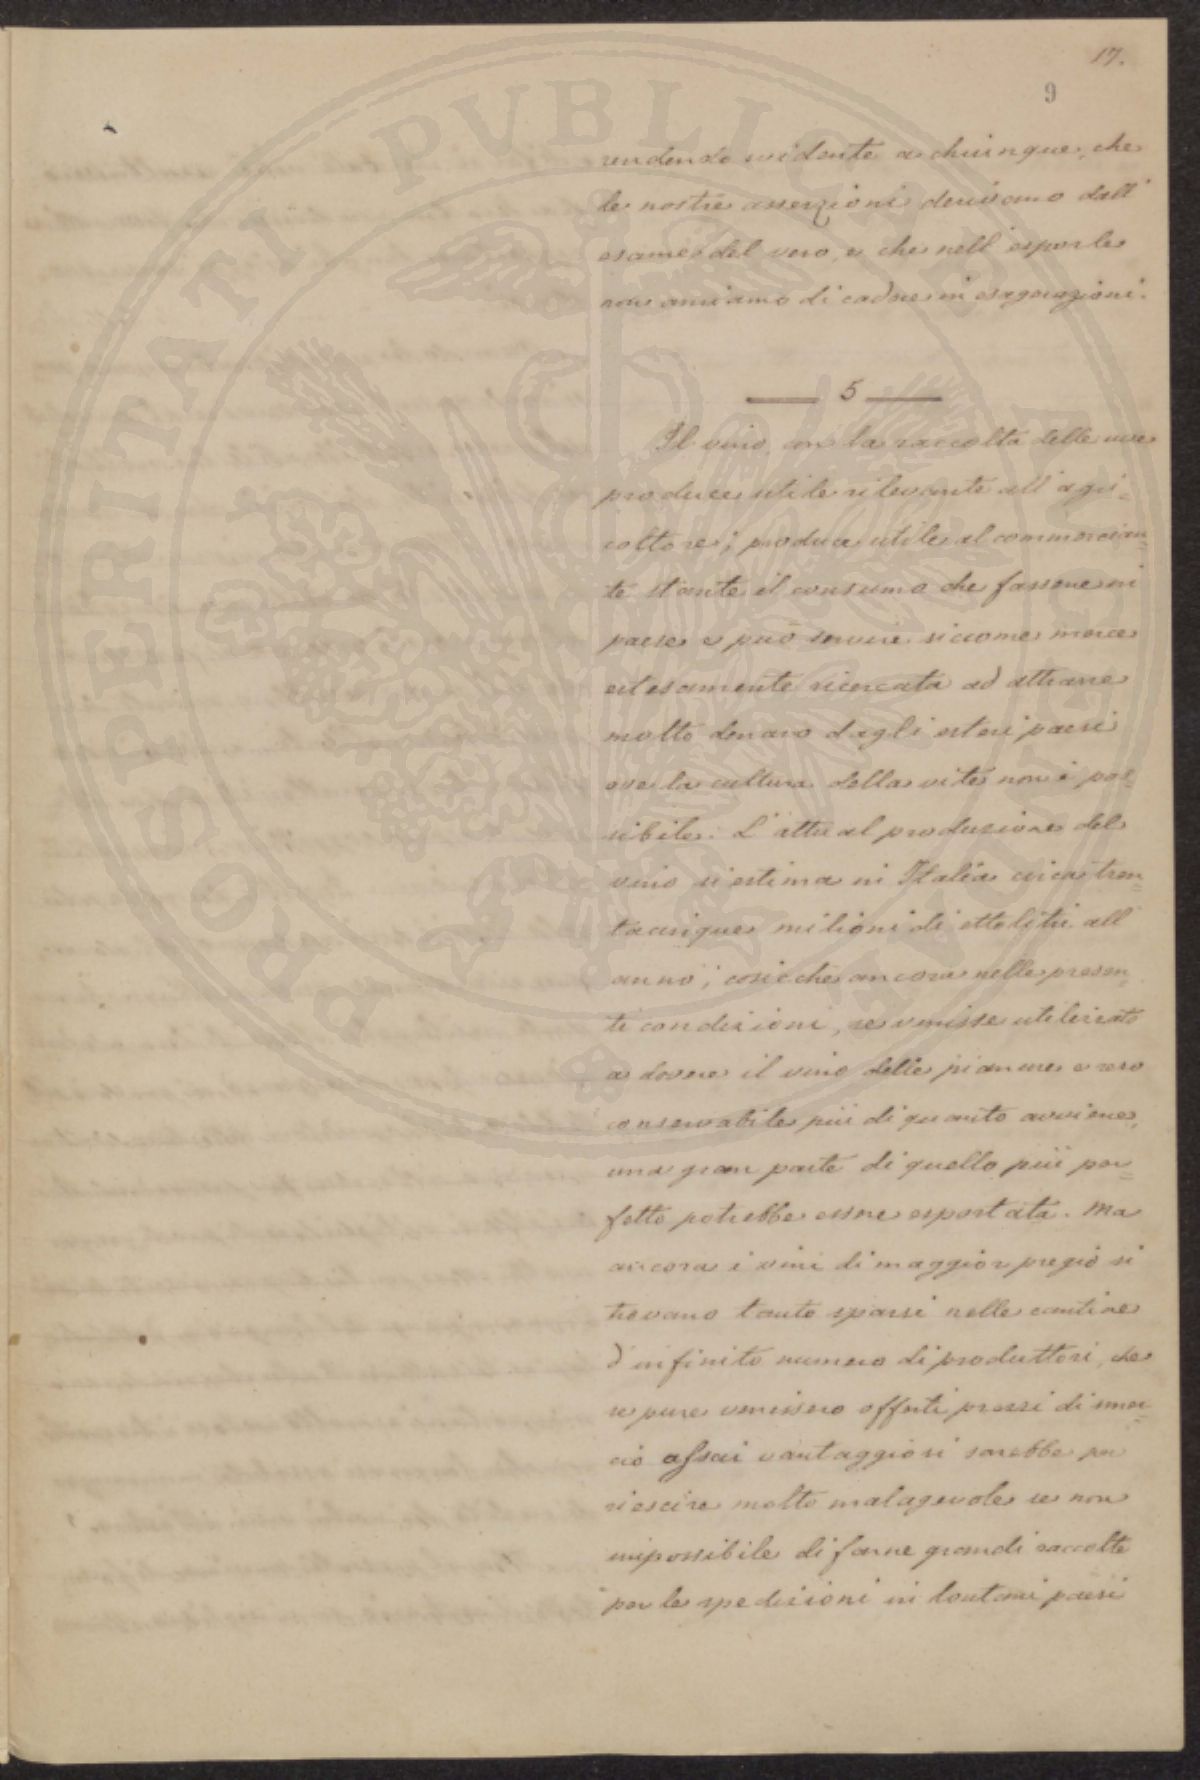 17.
9
PROSPERITATI PVBLICAE AVGENDAE
rendendo evidente a chiunque, che
le nostre asserzioni derivano dall'
esame del vero, e che nell'esporle
non amiamo di cadere in esagerazioni.
5
Il vino, con la raccolta delle uve
produce utile rilevante all'agri=
coltore; produce utile al commercian=
te stante il consumo che fassene in
paese e può servire siccome merce
estesamente ricercata ad attrarre
molto denaro dagli esteri paesi
ove la cultura della vite non è pos=
sibile. L'attual produzione del
vino si estima in Italia circa tren=
tacinque milioni di ettolitri all'
anno; cosicchè ancora nelle presen=
ti condizioni, se venisse utilizzato
a dovere il vino delle pianure e reso
conservabile più di quanto avviene,
una gran parte di quello più per=
fetto potrebbe essere esportata. Ma
ancora i vini di maggior pregio si
trovano tanto sparsi nelle cantine
d'infinito numero di produttori, che
se pure venissero offerti prezzi di smer=
cio assai vantaggiosi sarebbe per
riescire molto malagevole se non
impossibile di farne grandi raccolte
per le spedizioni in lontani paesi